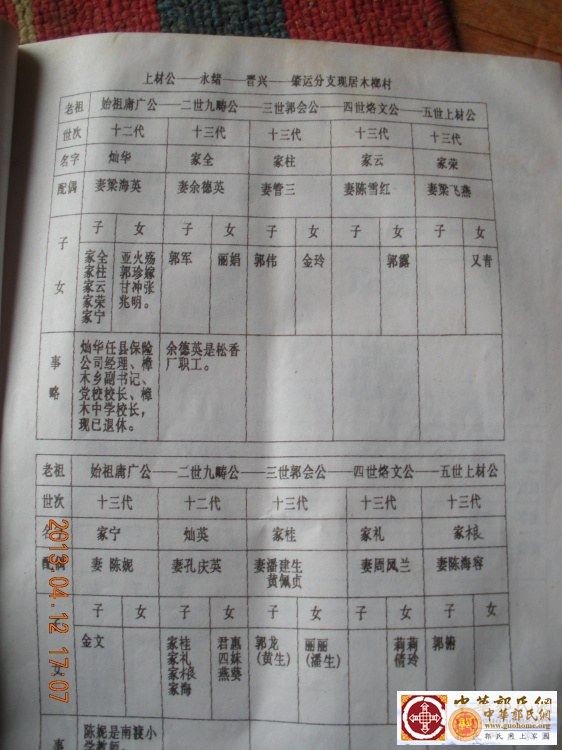 上材公——永绪——晋兴——肇运分支现居木榔村
老祖 始祖庸广公——二世九畴公——三世郭会公——四世烙文公——五世上材公
世次 十二代 十三代 十三代 十三代 十三代
名字 灿华 家全 家柱 家云 家荣
配偶 妻梁海英 妻余德英 妻管三 妻陈雪红 妻梁飞燕
子女 子 女 子 女 子 女 子 女 子 女
家全 亚火殇 郭军 丽娟 郭伟 金玲 郭露 又青
家柱 郭珍嫁
家云 甘冲张
家荣 兆明。
家宁
事略 灿华任县保险 余德英是松香
公司经理、樟 厂职工。
木乡副书记、
党校校长、樟
木中学校长,
现已退休。
老祖 始祖庸广公——二世九畴公——三世郭会公——四世烙文公——五世上材公
世次 十三代 十二代 十三代 十三代 十三代
名 家宁 灿英 家桂 家礼 家根
配偶 妻陈妮 妻孔庆英 妻潘建生 妻周风兰 妻陈海容
黄佩贞
女 子 女 子 女 子 女 子 女 子 女
金文 家桂 君惠 郭龙 丽丽 莉莉 郭俯
家礼 四妹 (黄生) (潘生) 倩玲
家根 燕葵
家海
事 陈妮是南筱小
学教师
2013 04 12 17:07
中華郭氏網
中華郭氏網
郭氏網上家園
www.guohome.org